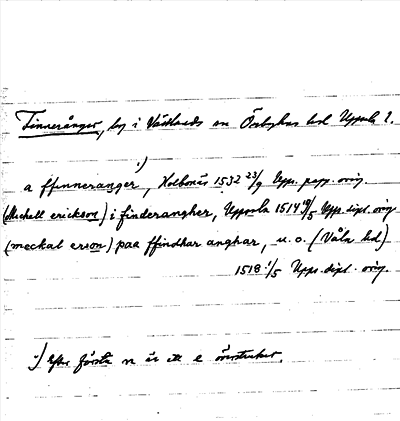 Finnerånger, by i Västlands sn Örbyhus hd Uppsala l.
1)
a ffinneranger, Holbonäs 1532 23/9 Upps. papp. orig.
(Michell erickson) i finderangher, Uppsala 1514 18/5 Upps. dipl. orig
(meckal erson) paa ffindhar anghar, u. o. (Våla hd)
1518 1/5 Upps. dipl. orig.
1) Efter första n är ett e överstruket.